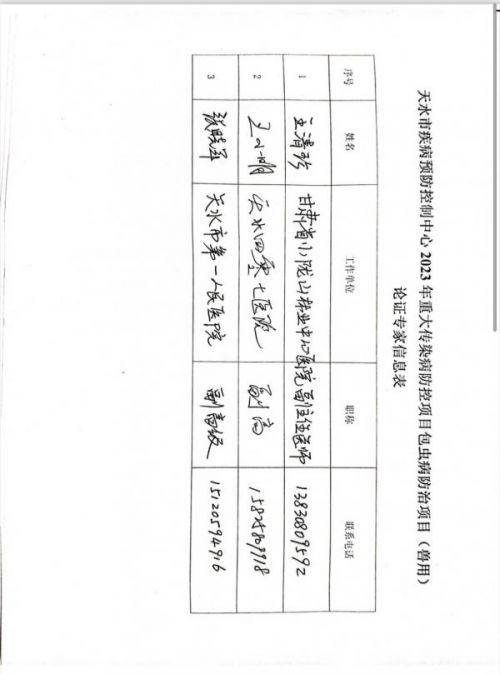 天水市疾病预防控制中心 2023 年重大传染病防控项目包虫病防治项目（兽用）
论证专家信息表
序号 姓名 工作单位 职称 联系电话
1 王清珍 甘肃省小陇山林业中心医院 副主任医师 13830809592
2 王小明 天水四零七医院 副高 15825809918
3 张晓军 天水市第一人民医院 副高级 15120594916